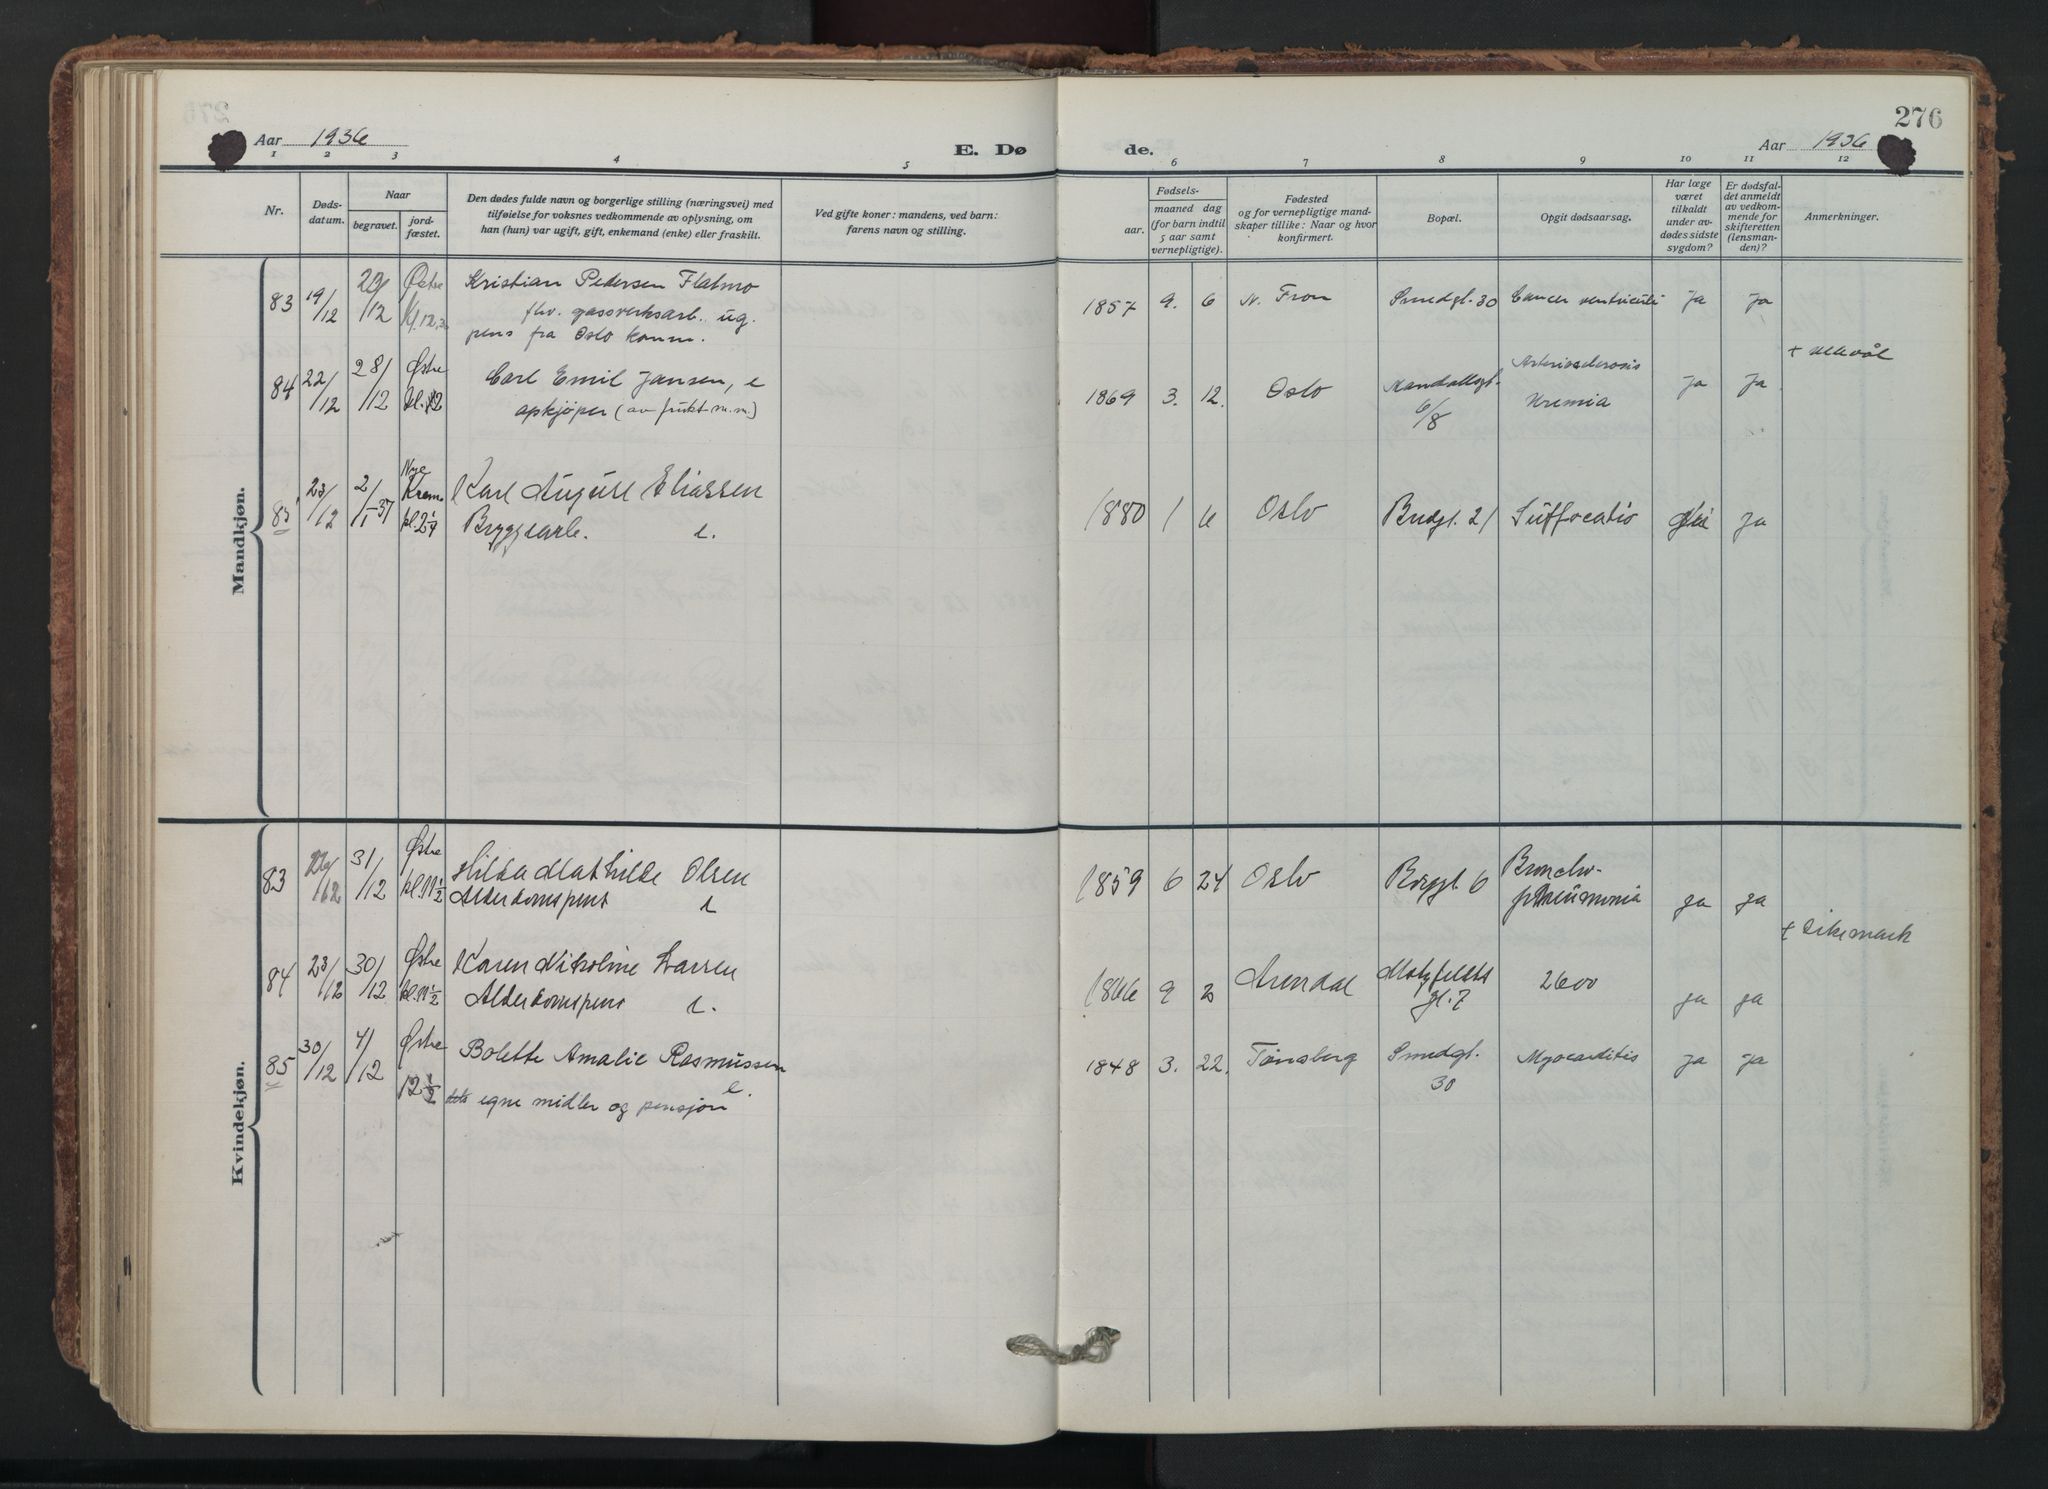 276
Aar 1936
E. Dø de.
Aar 1936
1 2 3 4 5 6 7 8 9 10 11 12
Nr.
Døds-
datum.
Naar
begravet.
jord-
fæstet.
Den dødes fulde navn og borgerlige stilling (næringsvei) med
tilføielse for voksnes vedkommende av oplysning, om
han (hun) var ugift, gift, enkemand (enke) eller fraskilt.
Ved gifte koner: mandens, ved barn:
farens navn og stilling.
Fødsels-
aar.
maaned dag
(for barn indtil
5 aar samt
vernepligtige).
Fødested
og for vernepligtige mand-
skaper tillike: Naar og hvor
konfirmert.
Bopæl.
Opgit dødsaarsag.
Har læge
været
tilkaldt
under av-
dødes sidste
sygdom?
Er dødsfal-
det anmeldt
av vedkom-
mende for
skifteretten
(lensman-
den)?
Anmerkninger.
Mandkjøn.
83 19/12 29/12 Østre Kristian Pedersen Flatmo 1857 9. 6 N. Fron Smedgt. 30 Cancer ventriculi Ja Ja
Kl. 12,30 fhv. gassverksarb. ug.
pens fra Oslo komm.
+ Ullevål
84 22/12 28/12 Østre Carl Emil Jansen, e 1869 3. 12. Oslo 6/8 Arteriosclerosis Ja Ja
kl. 12 opkjøper (av frukt m.m.) Uremia
85 23/12 2/1-37 Nye Krem. Karl August Eliassen 1880 1 6 Oslo Brugt. 21 Suffocatio Nei Ja
kl. 2 1/4 Bryggearb. e.
Kvindekjøn.
83 /12 31/12 Østre Hilda Mathilde Olsen 1859 6 24 Oslo Borggt. 6 Broncho-
kl. 11 1/2 Alderdomspens e pneumonia ja ja
+ Dikemark
84 23/12 30/12 Østre Karen Nikoline Larsen 1866 9 2 Arendal Motzfeldts 2600 ja ja
kl. 11 1/2 Alderdomspens e. gt. 7
85 30/12 4/12 Østre Bolette Amalie Rasmussen 1848 3. 22. Tønsberg Smedgt. Myocarditis Ja Ja
12 1/2 egne midler og pensjon e. 30